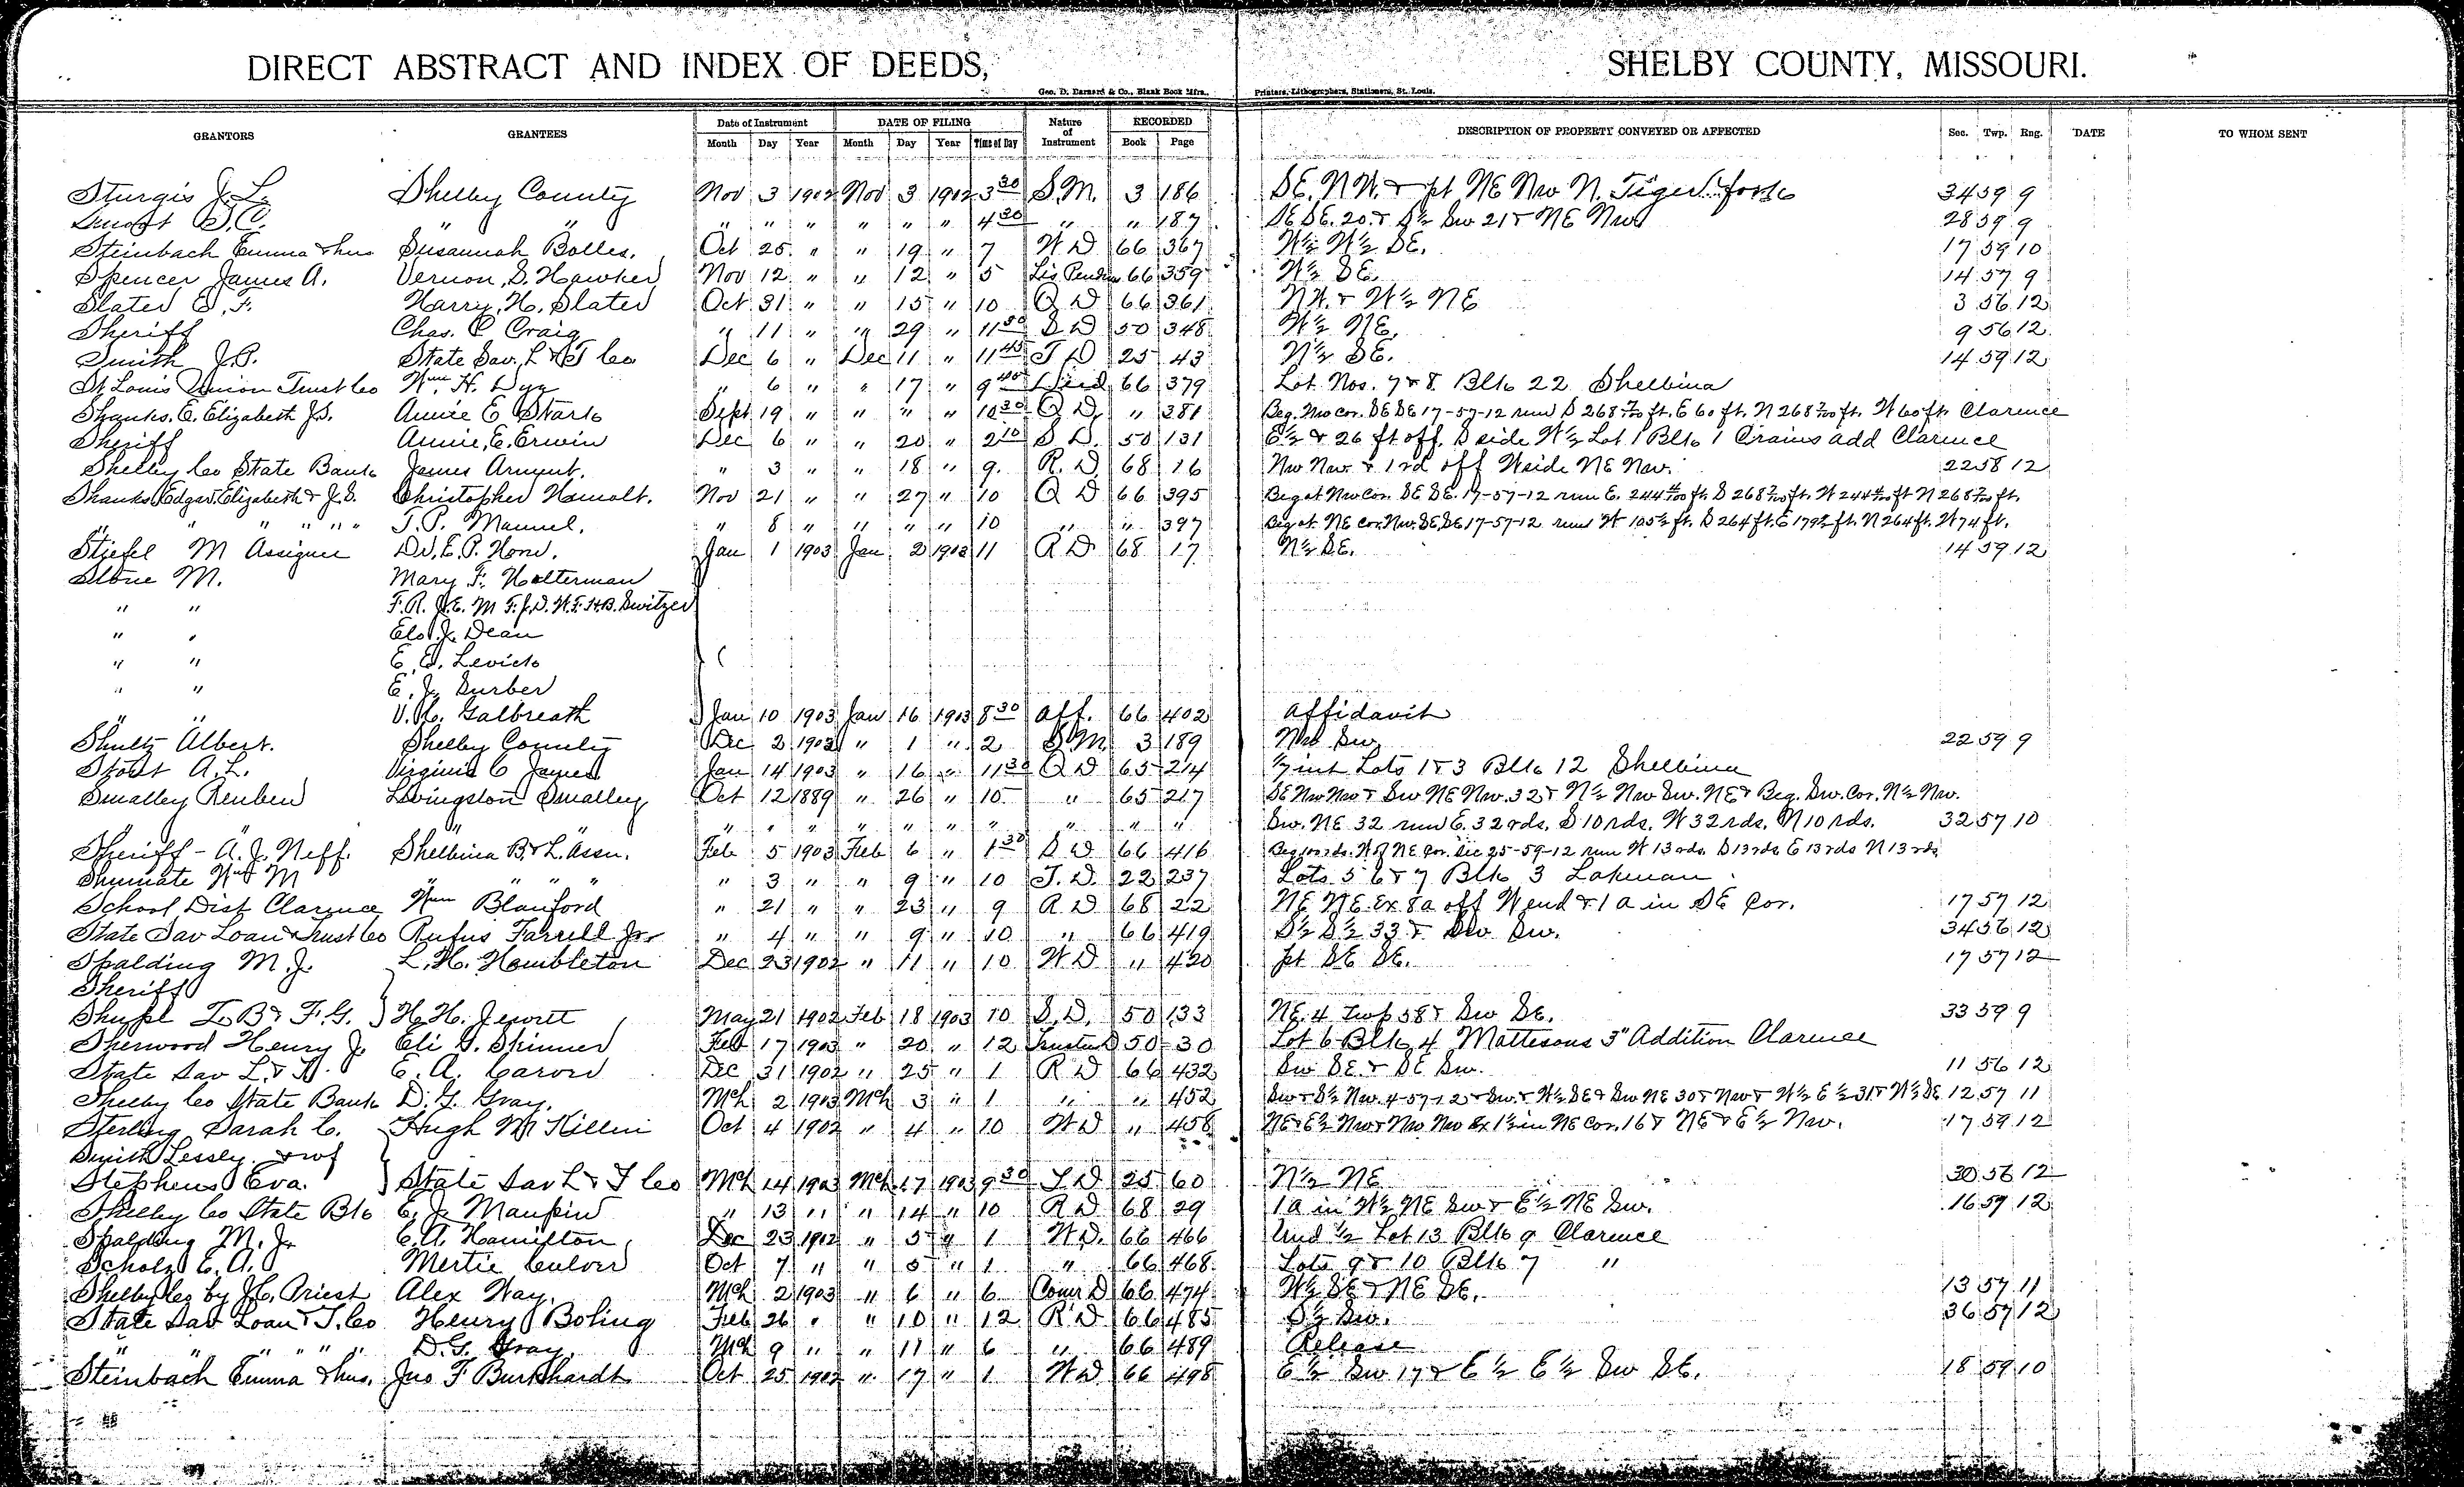 DIRECT ABSTRACT AND INDEX OF DEEDS, SHELBY COUNTY, MISSOURI.
Geo. D. Barnard & Co., Blank Book Mfrs., Printers, Lithographers, Stationers, St. Louis.
GRANTORS GRANTEES Date of Instrument DATE OF FILING Nature of Instrument RECORDED DESCRIPTION OF PROPERTY CONVEYED OR AFFECTED Sec. Twp. Rng. DATE TO WHOM SENT
Month Day Year Month Day Year Time of Day Book Page
Sturgis J. L. Shelby County Nov 3 1902 Nov 3 1902 3 30 S.M. 3 186 SE. NW. & pt NE Nw N. Tiger fork 34 59 9
S.C. " " " " " " " " 4 30 " " 187 SE SE. 20 & S½ Sw 21 & NE Nw 28 59 9
Steinbach Emma & hus Susannah Bolles. Oct 25 " " 19 " 7 W D 66 367 W½ W½ SE. 17 59 10
Spencer James A. Vernon S. Hawker Nov 12 " " 12 " 5 Lis Penden 66 359 W½ SE. 14 57 9
Slater E. F. Harry H. Slater Oct 31 " " 15 " 10 Q D 66 361 NW. & W½ NE 3 56 12
Sheriff Chas. P Craig " 11 " " 29 " 11 30 S D 50 348 W½ NE. 9 56 12
Smith J.P. State Sav. L & T Co Dec 6 " Dec 11 " 11 45 T D 25 43 N½ SE. 14 59 12
St Louis Union Trust Co Wm H. Dye " 6 " " 17 " 9 40 Deed 66 379 Lot Nos. 7 & 8 Blk 22 Shelbina
Shanks. E. Elizabeth J.S. Annie E Stark Sept 19 " " " " 10 30 Q D. " 381 Beg. Nw cor. SE SE 17-57-12 run S 268 7/100 ft. E 60 ft. N 268 7/100 ft. W 60 ft Clarence
Sheriff Annie, E. Erwin Dec 6 " " 20 " 2 10 S D. 50 131 E½ & 26 ft off. S side W½ Lot 1 Blk 1 Crains add Clarence
Shelby Co State Bank James Arment. " 3 " " 18 " 9. R. D 68 16 Nw Nw & 1 rd off W side NE Nw. 22 58 12
Shanks Edgar, Elizabeth & J.S. Christopher Hamolt. Nov 21 " " 27 " 10 Q D 66 395 Beg at Nw Cor. SE SE. 17-57-12 run E. 244 4/100 ft. S 268 7/100 ft. W 244 4/100 ft N 268 7/100 ft.
" " " " " " T. P. Manuel. " 8 " " " " 10 " " 397 Beg at NE cor. Nw. SE SE 17-57-12 run W 105½ ft. S 264 ft. E 179½ ft. N 264 ft. W 74 ft.
Stiefel M Assignee Dv. E. P. Hond. Jan 1 1903 Jan 2 1903 11 R D 68 17 N½ SE. 14 59 12
Stone M. Mary F. Holterman
" " F.R. J.E. M F. J.D. W.F. H.B. Switzer
" " Elo J. Dean
" " E. E. Levick
" " E. J. Surber
" " V. C. Galbreath Jan 10 1903 Jan 16 1903 8 30 Aff. 66 402 Affidavit
Shultz Albert. Shelby County Dec 2 1902 " 1 " 2 S M 3 189 Nw Sw 22 59 9
Stout A. L. Virginia C James Jan 14 1903 " 16 " 11 30 Q D 65 214 1/7 int Lots 1 & 3 Blk 12 Shelbina
Smalley Reuben Livingston Smalley Oct 12 1889 " 26 " 10 " 65 217 SE Nw Nw & Sw NE Nw. 32 & N½ Nw Sw. NE & Beg. Sw. Cor. N½ Nw.
" " " " " " " " " " " Sw. NE 32 run E. 32 rds. S 10 rds. W 32 rds. N 10 rds. 32 57 10
Sheriff - A. J. Neff. Shelbina B & L. Assn. Feb 5 1903 Feb 6 " 1 30 S D 66 416 Beg 10 rds. W of NE Cor. Sec 25-59-12 run W 13 rds. S 13 rds E 13 rds N 13 rds
Shumate Wm M " " " " " 3 " " 9 " 10 T. D. 22 237 Lots 5 6 & 7 Blk 3 Lakenan
School Dist Clarence Wm Blanford " 21 " " 23 " 9 R D 68 22 NE NE Ex 8a off W end & 1 a in SE Cor. 17 57 12
State Sav Loan & Trust Co Rufus Farrell Jr " 4 " " 9 " 10 " 66 419 S½ S½ 33 & Sw Sw. 34 56 12
Spalding M. J. L. H. Hambleton Dec 23 1902 " 11 " 10 W D " 420 pt SE SE. 17 57 12
Sheriff
L. B & F. G. } H. H. Jewett May 21 1902 Feb 18 1903 10 S. D. 50 133 NE. 4 Twp 58 & Sw SE. 33 59 9
Sherwood Henry J. Eli G. Skinner Feb 17 1903 " 20 " 12 Trustee D 50 30 Lot 6 Blk 4 Mattesons 3" Addition Clarence
State Sav L. & T. E. A. Carver Dec 31 1902 " 25 " 1 R D 66 432 Sw SE. & SE Sw. 11 56 12
Shelby Co State Bank D. G. Gray. Mch 2 1903 Mch 3 " 1 " " 452 Sw & S½ Nw. 4-57-12 & Sw. & W½ SE & Sw NE 30 & Nw & W½ E½ 31 & W½ SE 12 57 11
Sterling Sarah C. Hugh McKillin Oct 4 1902 " 4 " 10 W D " 458 NE & E½ Nw & Nw Nw Ex 1½ in NE Cor. 16 & NE & E½ Nw. 17 59 12
Smith Lessly & wf
Stephens Eva. } State Sav L & T Co Mch 14 1903 Mch 17 1903 9 30 T D 25 60 N½ NE 30 56 12
Shelby Co State Bk E. J. Maupin " 13 " " 14 " 10 R D 68 29 1a in W½ NE Sw & E½ NE Sw. 16 57 12
Spalding M. J. C. A. Hamilton Dec 23 1902 " 5 " 1 W D. 66 466 Und ½ Lot 13 Blk 9 Clarence
Scholz C. A. Mertie Culver Oct 7 " " 5 " 1 " 66 468 Lots 9 & 10 Blk 7 "
Shelby Co by J. C. Priest Alex Way. Mch 2 1903 " 6 " 6 Comr D 66 474 W½ SE & NE SE. 13 57 11
State Sav Loan & T. Co Henry Boling Feb 26 " " 10 " 12 R D 66 485 S½ Sw. 36 57 12
" " " " " D. G. Gray. Mch 9 " " 11 " 6 " 66 489 Release
Steinbach Emma & hus. Jno F. Burkhardt Oct 25 1902 " 17 " 1 W D 66 498 E½ Sw 17 & E½ E½ Sw SE. 18 59 10